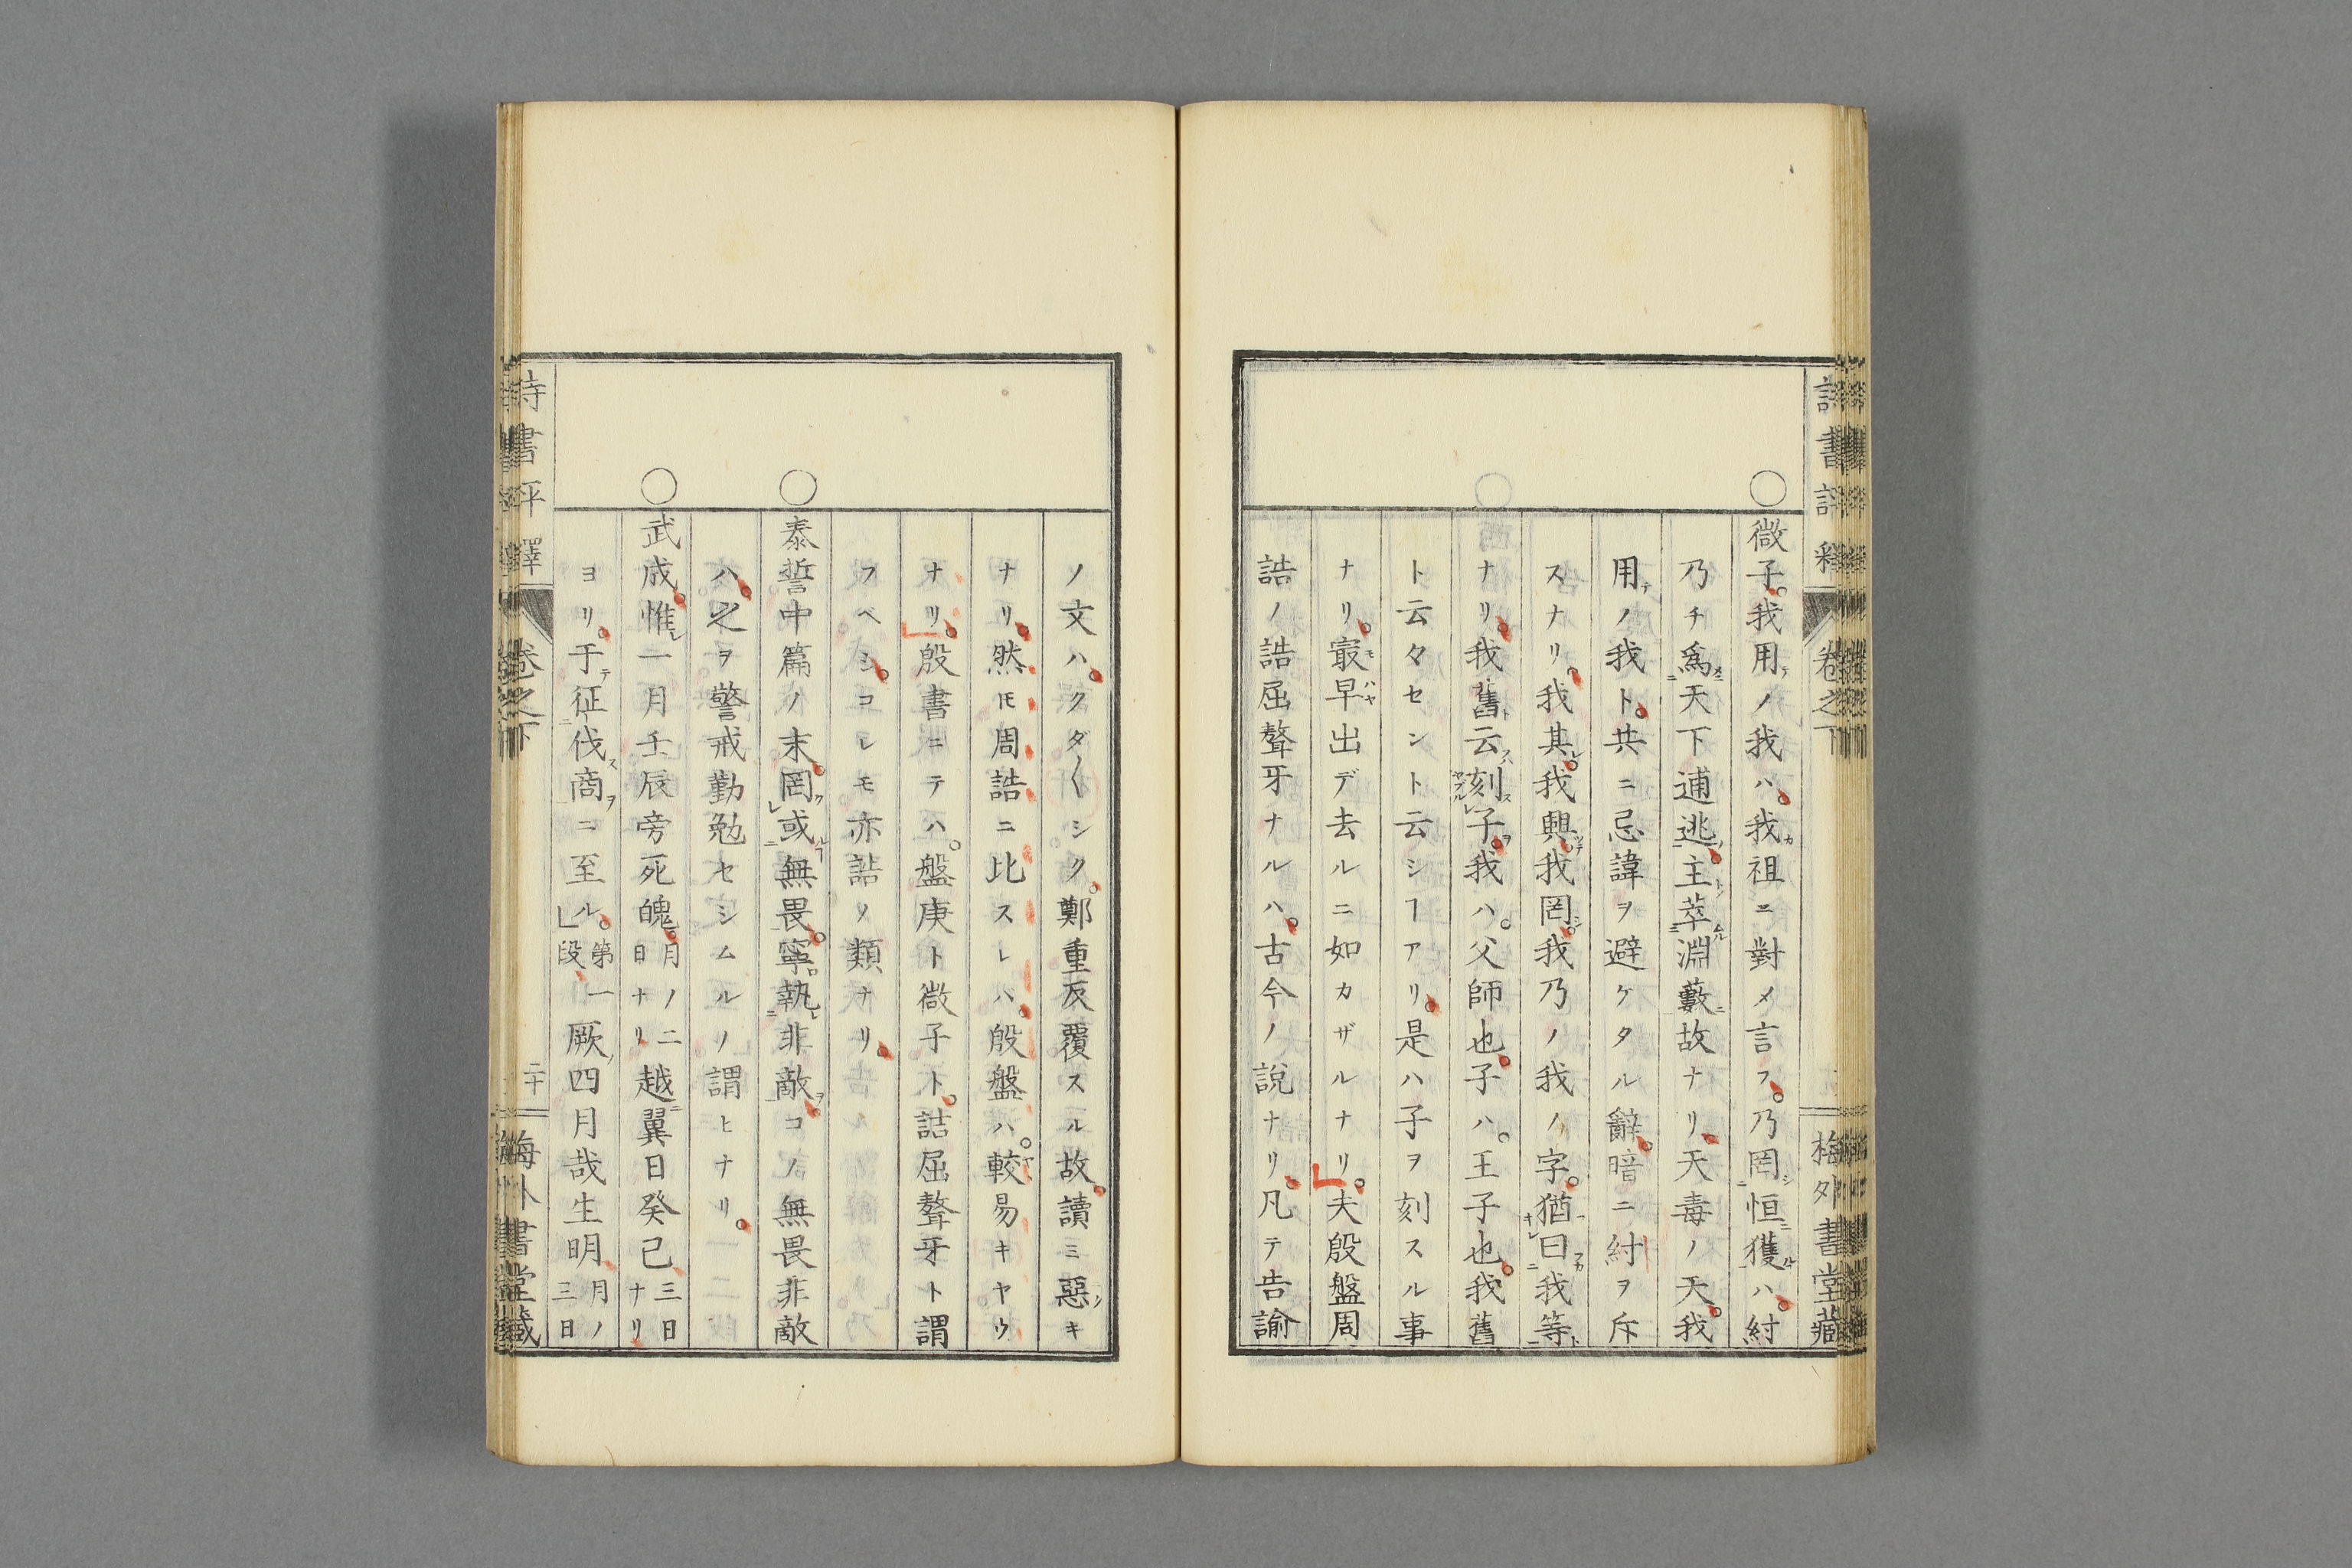 詩書評釋 卷之下 梅外書堂藏
○微子。我用ノ我ハ。我祖ニ對メ言フ。乃罔恒獲ハ。紂
乃チ爲天下逋逃。主萃淵藪故ナリ。天毒ノ天。我
用ノ我ト。共ニ忌諱ヲ避ケタル辭。暗ニ紂ヲ斥
スナリ。我其。我興。我罔。我乃ノ我ノ字。猶曰我等
ナリ。我舊云刻子。我ハ。父師也。子ハ。王子也。我舊
ト云々セント云シヿアリ。是ハ子ヲ刻スル事
ナリ。冣早出デ去ルニ如カザルナリ。夫殷盤周
誥ノ詰屈聱牙ナルハ。古今ノ說ナリ。凡テ告諭
ノ文ハ。クダ〱シク。鄭重反覆スル故。讀ミ惡キ
ナリ。然𪜈周誥ニ比スレバ。殷盤ハ。較易キヤウ
ナリ。殷書ニテハ。盤庚ト微子ト。詰屈聱牙ト謂
フベシ。コレモ亦誥ノ類ナリ。
○泰誓中篇ノ末。罔或無畏。寧執非敵。コノ無畏非敵
ハ。之ヲ警戒勤勉セシムルノ謂ヒナリ。
○武成。惟一月壬辰旁死魄。月ノ二日ナリ越翼日癸巳三日ナリ
ヨリ。于征伐商ニ至ル。第一段厥四月哉生明月ノ三日
詩書評釋 卷之下 二十 梅外書堂藏